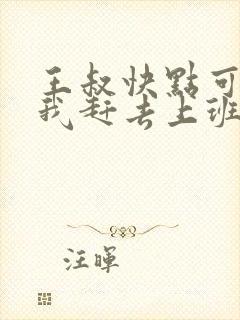 王叔快點可
我赶去上班
汪暉